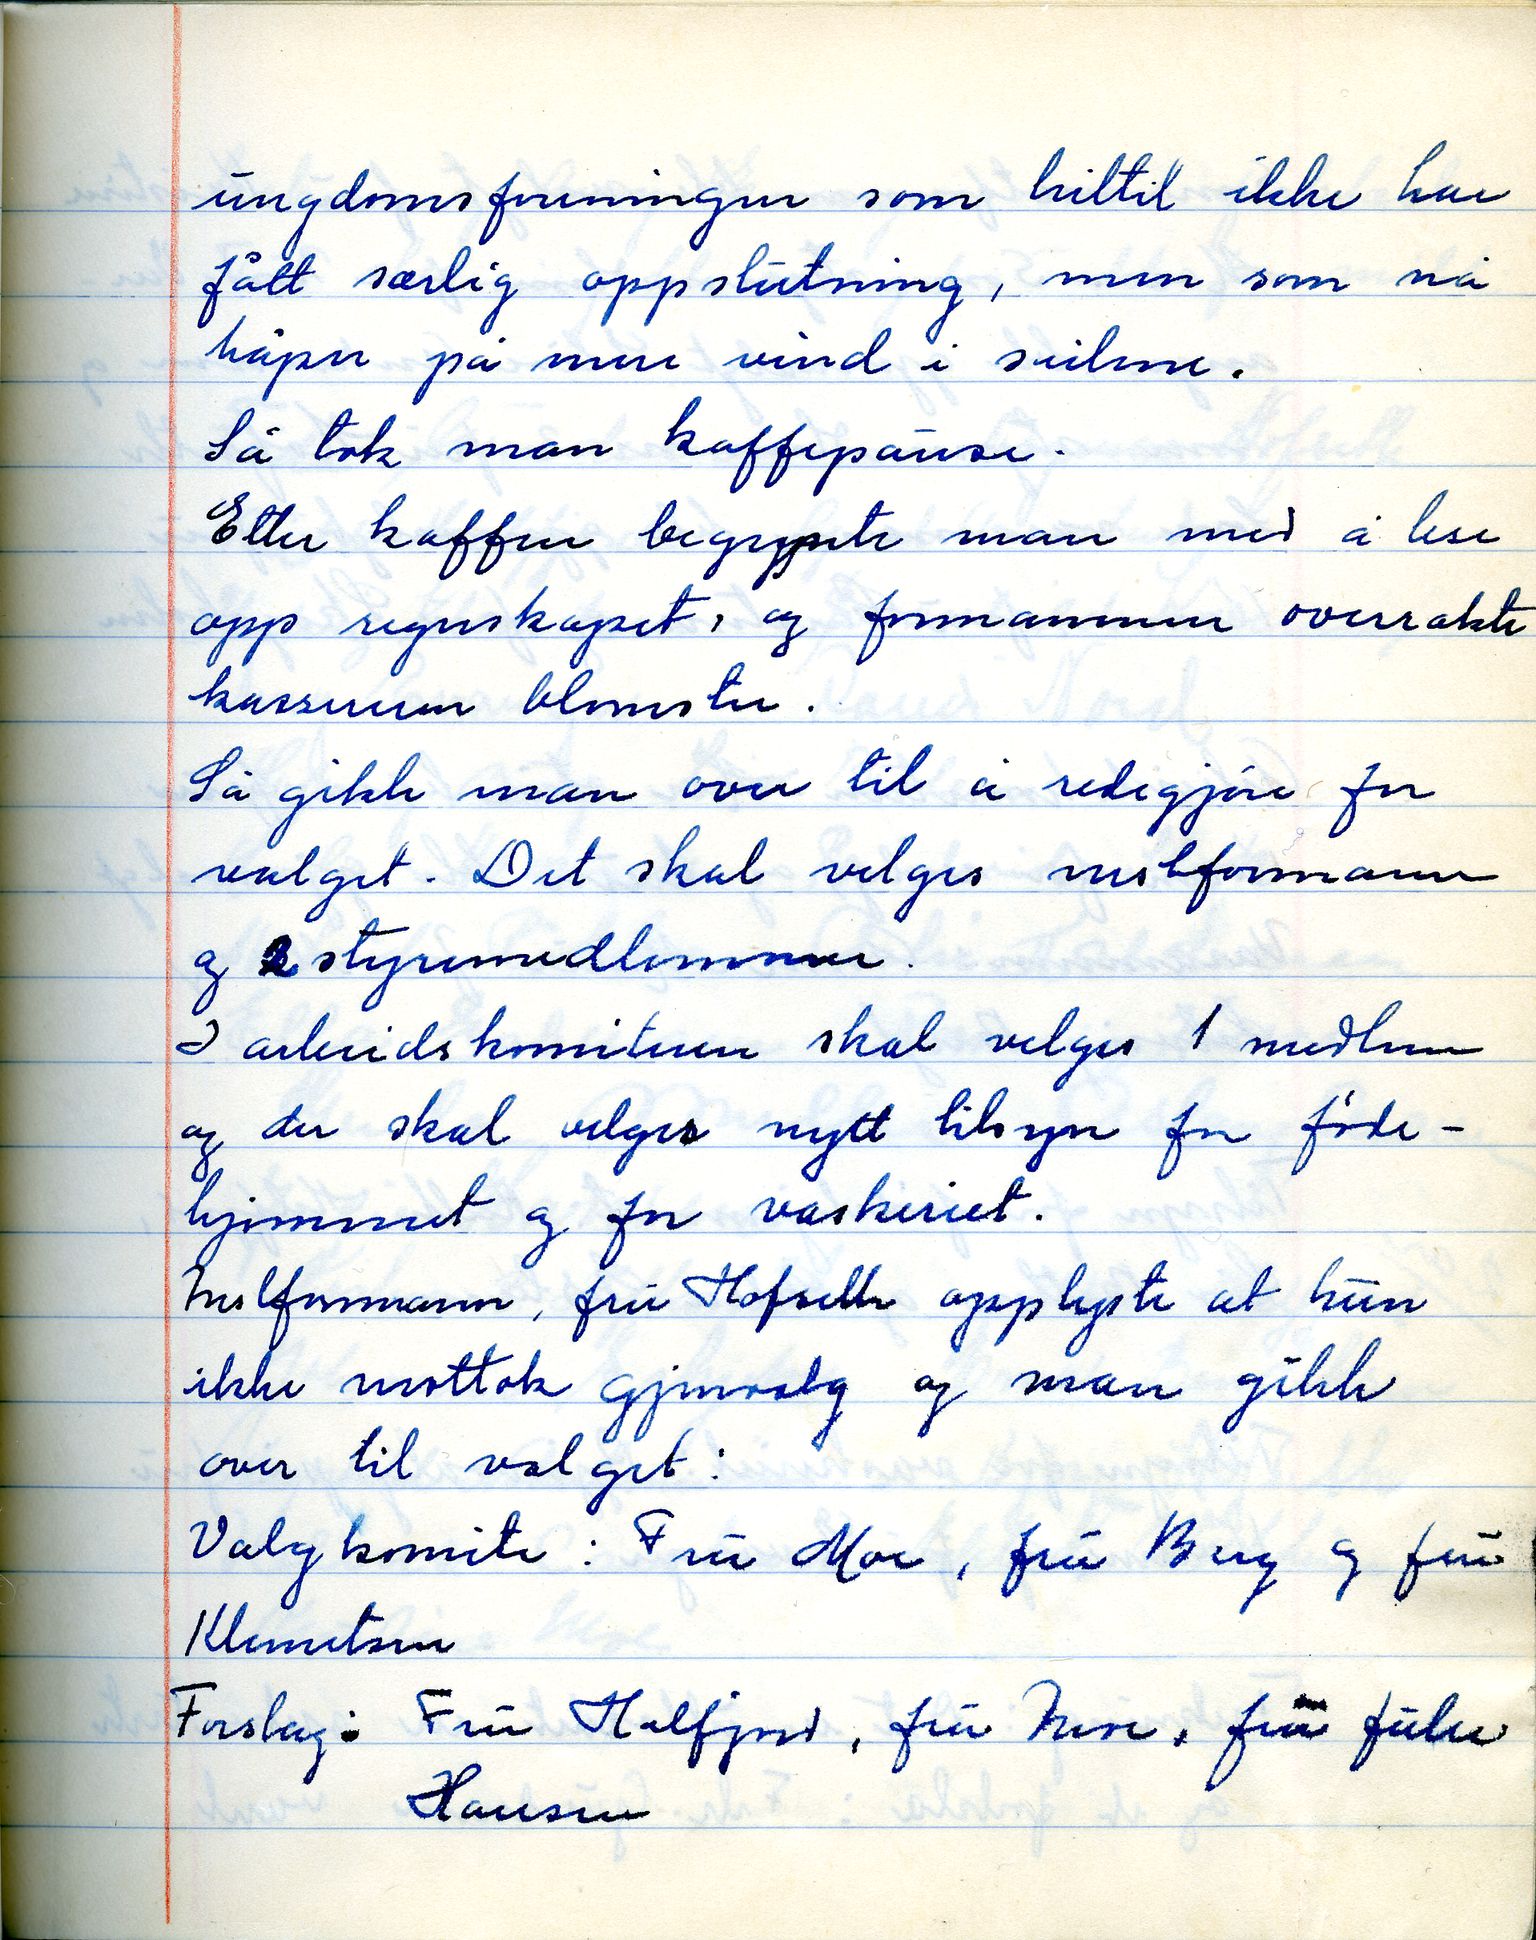 ungdomsforeningen som hiltil ikke har
fått særlig oppslutning, men som nå
håper på mere vind i seilene.
Så tok man kaffepause.
Etter kaffen begynte man med å lese
opp regnskapet, og formannen overrakte
kassereren blomster.
Så gikk man over til å redegjøre for
valget. Det skal velges nestformann
og 2 styremedlemmer.
I arbeidskomiteen skal velges 1 medlem
og der skal velges nytt tilsyn for føde-
hjemmet og for vaskeriet.
Nestformann, fru Hofseth opplyste at hun
ikke mottok gjenvalg og man gikk
over til valget:
Valgkomite: Fru Moe, fru Berg og fru
Klemetsen
Forslag: Fru Halfjord, fru fru
Hansen